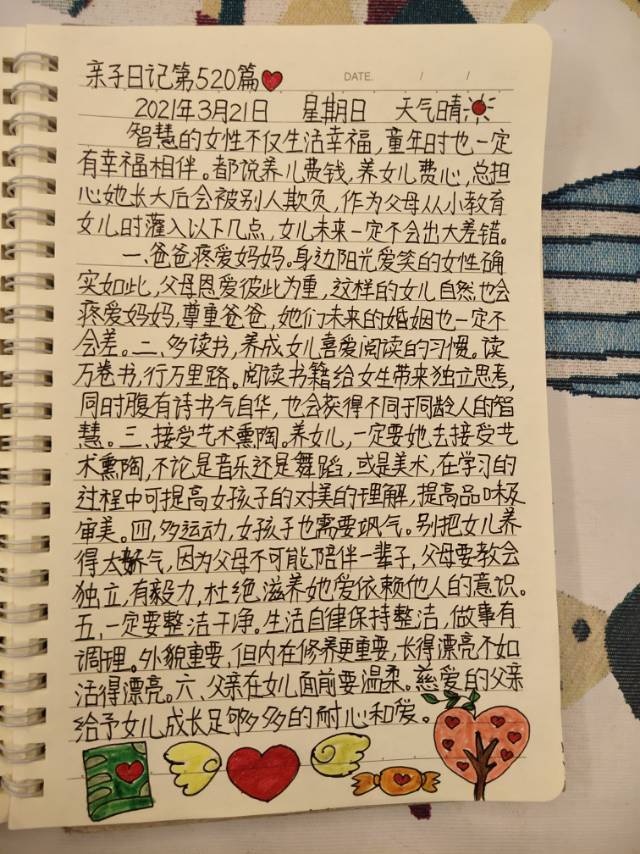 亲子日记第520篇
DATE. / /
2021年3月21日 星期日 天气晴
智慧的女性不仅生活幸福,童年时也一定
有幸福相伴。都说养儿费钱,养女儿费心,总担
心她长大后会被别人欺负,作为父母从小教育
女儿时灌入以下几点,女儿未来一定不会出大差错。
一、爸爸疼爱妈妈。身边阳光爱笑的女性确
实如此,父母恩爱彼此为重,这样的女儿自然也会
疼爱妈妈,尊重爸爸,她们未来的婚姻也一定不
会差。二、多读书,养成女儿喜爱阅读的习惯。读
万卷书,行万里路。阅读书籍给女生带来独立思考,
同时腹有诗书气自华,也会获得不同于同龄人的智
慧。三、接受艺术熏陶。养女儿,一定要她去接受艺
术熏陶,不论是音乐还是舞蹈,或是美术,在学习的
过程中可提高女孩子的对美的理解,提高品味及
审美。四,多运动,女孩子也需要飒气。别把女儿养
得太娇气,因为父母不可能陪伴一辈子,父母要教会
独立,有毅力,杜绝滋养她爱依赖他人的意识。
五、一定要整洁干净。生活自律保持整洁,做事有
调理。外貌重要,但内在修养更重要,长得漂亮不如
活得漂亮。六、父亲在女儿面前要温柔。慈爱的父亲
给予女儿成长足够多多的耐心和爱。